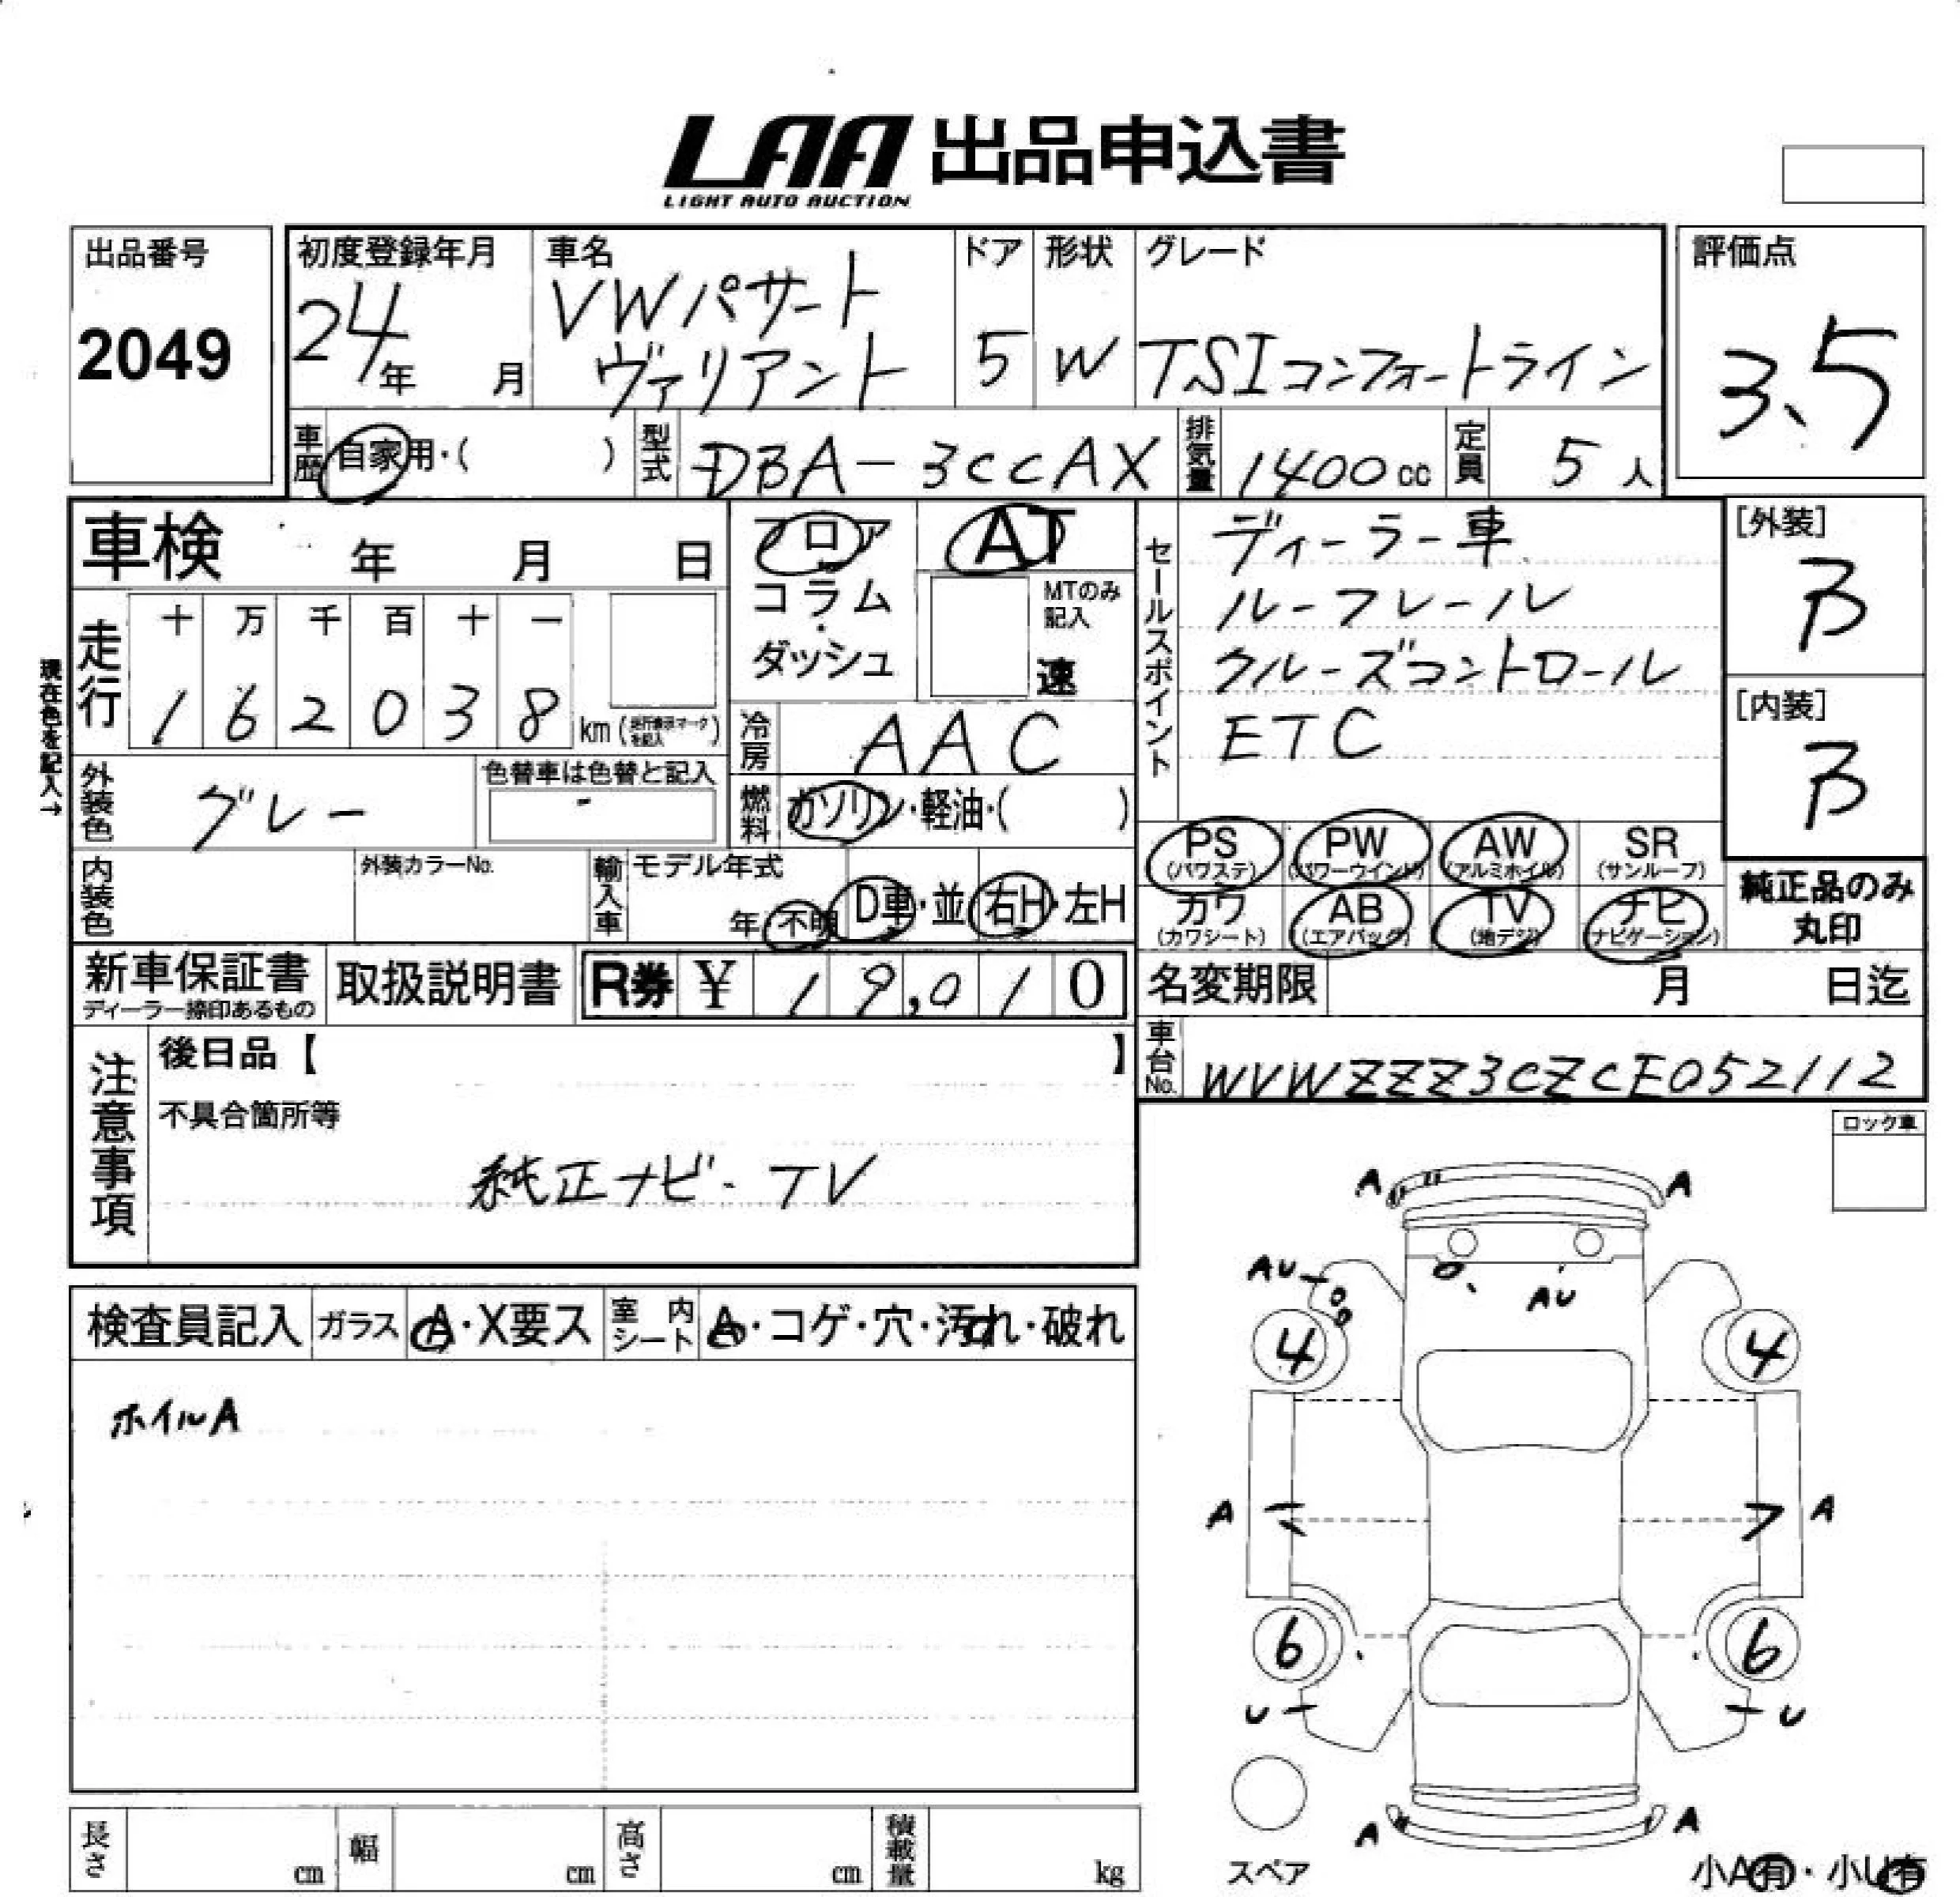 LAA 出品申込書
LIGHT AUTO AUCTION
出品番号
2049
初度登録年月
24年 月
車名
VWパサート
ヴァリアント
ドア
5
形状
W
グレード
TSIコンフォートライン
評価点
3.5
車歴 自家用・( )
型式 DBA-3CCAX
排気量 1400cc
定員 5人
車検 年 月 日
フロア
コラム
・
ダッシュ
AT
MTのみ
記入
速
セールスポイント
ディーラー車
ルーフレール
クルーズコントロール
ETC
[外装]
B
[内装]
B
現在色を記入→
走行
十 万 千 百 十 一
1 6 2 0 3 8 km
冷房 AAC
外装色 グレー
色替車は色替と記入
燃料 ガソリン・軽油・( )
PS
(パワステ)
PW
(パワーウインド)
AW
(アルミホイル)
SR
(サンルーフ)
カワ
(カワシート)
AB
(エアバッグ)
TV
(地デジ)
ナビ
(ナビゲーション)
純正品のみ
丸印
内装色
外装カラーNo.
輸入車
モデル年式
年 不明
D車・並
右H・左H
新車保証書
ディーラー捺印あるもの
取扱説明書
R券 ¥ 19,010
名変期限 月 日迄
車台No. WVWZZZ3CZCE052112
注意事項
後日品【 】
不具合箇所等
純正ナビ-TV
ロック車
検査員記入
ガラス A・X要ス
室内シート A・コゲ・穴・汚れ・破れ
ホイルA
A A
AU AU
4 4
A A
6 6
U U
A A
スペア
小A有・小U有
長さ cm
幅 cm
高さ cm
積載量 kg